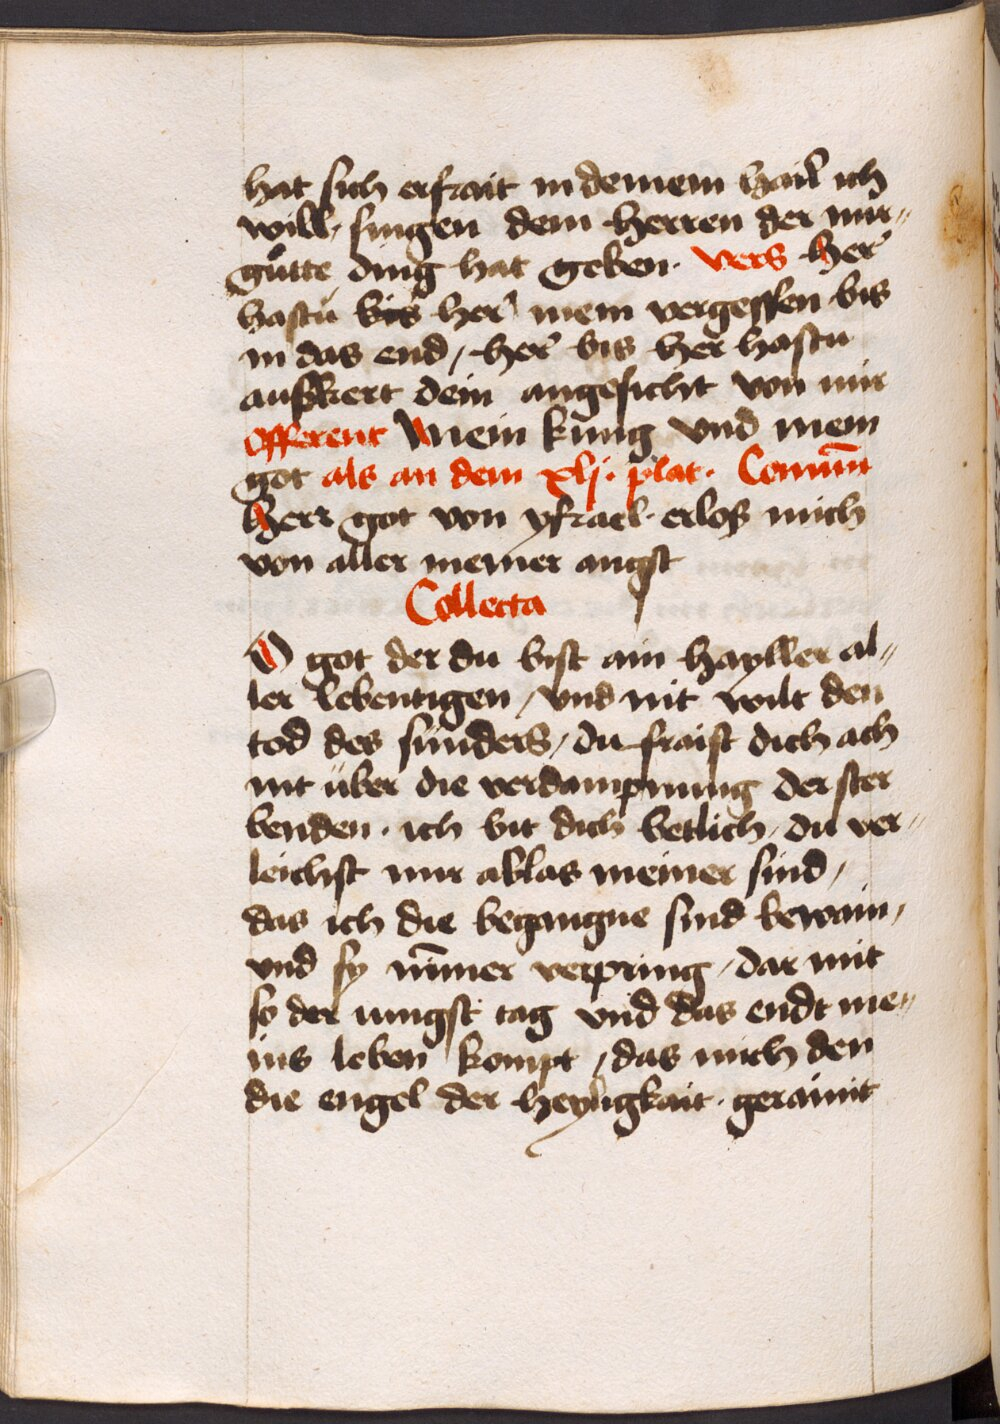 hat sich erfrait in deinem hail ich
will singen dem herren der mir
gůtte ding hat geben. vers Her
hastu bis her mein vergessen bis
in das end, her bis her hastu
auskert dein angesicht von mir
Offerent Mein kung vnd mein
got als an dem xlj. plat. Comūn
Herr got von ysrael erlos mich
von aller meiner angst
Collecta
O got der du bist ain hayller al„
ler lebentigen, vnd nit wilt den
tod des sünders, du fraist dich ach
nit über die verdampnung der ster
benden. ich bit dich betlich, du ver„
leichst mir ablas meiner sind,
das ich die begangne sind bewain,
vnd sy nīmer verpring, dar mit
so der iungst tag vnd das endt me„
ins leben kompt, das mich den
die engel der heyligkait geraimt